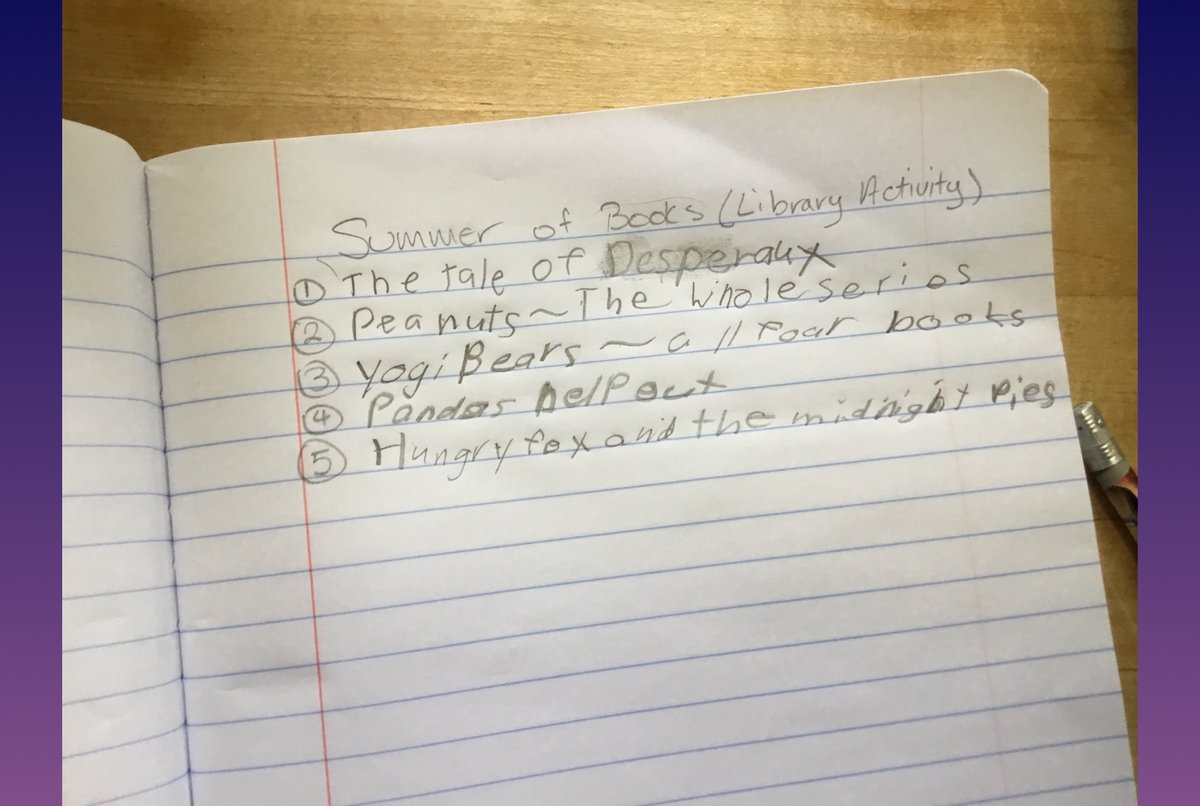 Summer of Books (Library Activity)
① The tale of Desperaux
② Peanuts ~ The whole series
③ Yogi Bears ~ all four books
④ Pandas Help out
⑤ Hungry fox and the midnight Pies